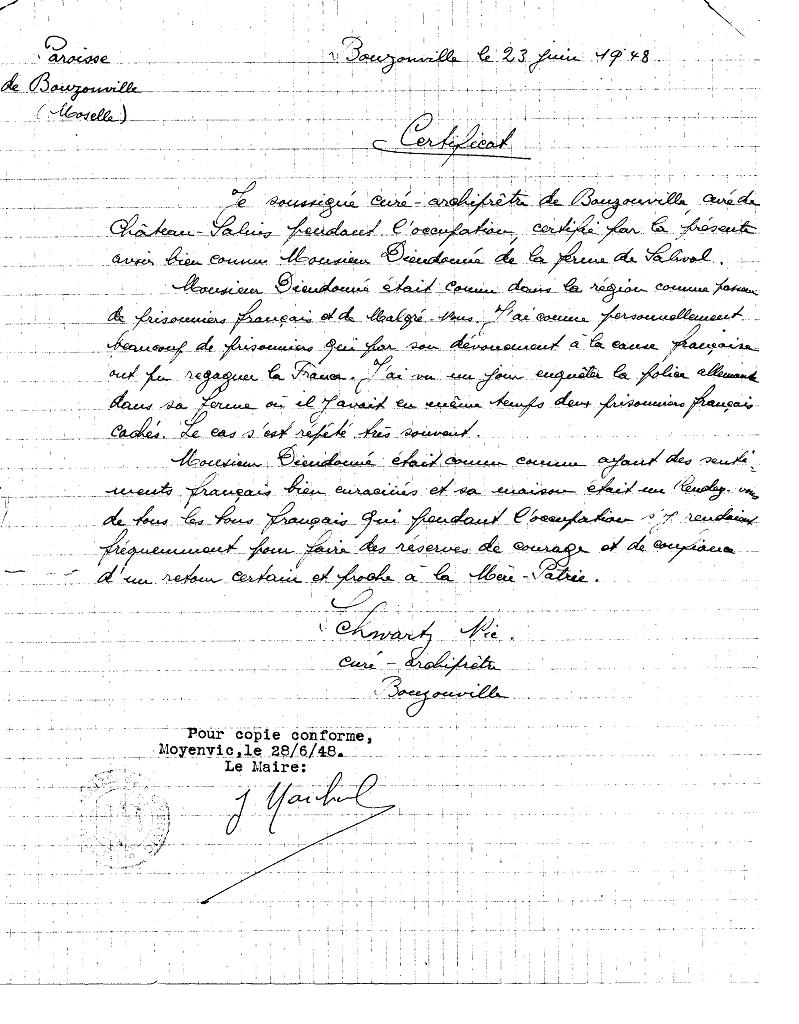 Paroisse
de Bouzonville
(Moselle)
Bouzonville le 23 juin 1948.
Certificat
Je soussigné curé-archiprêtre de Bouzonville, curé de
Château-Salins pendant l'occupation, certifie par la présente
avoir bien connu Monsieur Dieudonné de la ferme de Salival.
Monsieur Dieudonné était connu dans la région comme passeur
de prisonniers français et de Malgré-nous. J'ai connu personnellement
beaucoup de prisonniers qui par son dévouement à la cause française
ont pu regagner la France. J'ai vu un jour enquêter la police allemande
dans sa ferme où il y avait en même temps deux prisonniers français
cachés. Le cas s'est répété très souvent.
Monsieur Dieudonné était connu comme ayant des senti-
ments français bien enracinés et sa maison était un Rendez-vous
de tous les bons français qui pendant l'occupation s'y rendaient
fréquemment pour faire des réserves de courage et de confiance
d'un retour certain et proche à la Mère-Patrie.
Schwartz Nic.
curé-archiprêtre
Bouzonville
Pour copie conforme,
Moyenvic,le 28/6/48.
Le Maire: